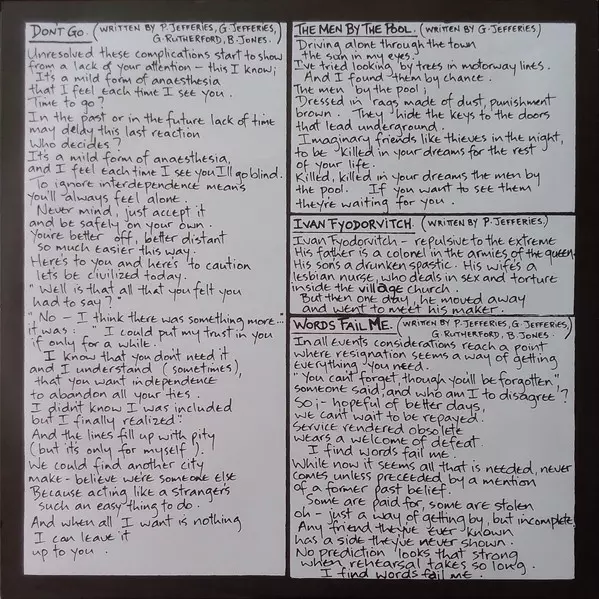 DON'T GO. (WRITTEN BY P. JEFFERIES, G. JEFFERIES,
G. RUTHERFORD, B. JONES.)
Unresolved these complications start to show
from a lack of your attention - this I know;
It's a mild form of anaesthesia
that I feel each time I see you.
Time to go?
In the past or in the future lack of time
may delay this last reaction
Who decides?
It's a mild form of anaesthesia,
and I feel each time I see you I'll go blind.
To ignore interdependence means
you'll always feel alone.
Never mind, just accept it
and be safely on your own.
You're better off, better distant
so much easier this way.
Here's to you and here's to caution
lets be civilized today.
"Well is that all that you felt you
had to say?"
"No - I think there was something more..."
it was: "I could put my trust in you
if only for a while.
I know that you don't need it
and I understand (sometimes),
that you want independence
to abandon all your ties.
I didn't know I was included
but I finally realized"
And the lines fill up with pity
(but it's only for myself).
We could find another city
make-believe we're someone else
Because acting like a strangers
such an easy thing to do.
And when all I want is nothing
I can leave it
up to you.
THE MEN BY THE POOL. (WRITTEN BY G. JEFFERIES)
Driving alone through the town
the sun in my eyes.
I've tried looking by trees in motorway lines.
And I found them by chance.
The men by the pool;
Dressed in rags made of dust, punishment
brown. They hide the keys to the doors
that lead underground.
Imaginary friends like thieves in the night,
to be killed in your dreams for the rest
of your life.
Killed, killed in your dreams the men by
the pool. If you want to see them
they're waiting for you.
IVAN FYODORVITCH. (WRITTEN BY P. JEFFERIES)
Ivan Fyodorvitch - repulsive to the extreme
His father is a colonel in the armies of the queen.
His son's a drunken spastic. His wife's a
lesbian nurse, who deals in sex and torture
inside the village church.
But then one day, he moved away
and went to meet his maker.
WORDS FAIL ME. (WRITTEN BY P. JEFFERIES, G. JEFFERIES,
G. RUTHERFORD, B. JONES.)
In all events considerations reach a point
where resignation seems a way of getting
everything you need.
"You can't forget, though you'll be forgotten",
someone said, and who am I to disagree?
So;- hopeful of better days,
we can't wait to be repayed.
Service rendered obsolete
wears a welcome of defeat.
I find words fail me.
While now it seems all that is needed, never
comes unless preceeded by a mention
of a former past belief.
Some are paid for, some are stolen
oh - just a way of getting by, but incomplete,
Any friend they've ever known
has a side they've never shown.
No prediction looks that strong
when rehearsal takes so long.
I find words fail me.